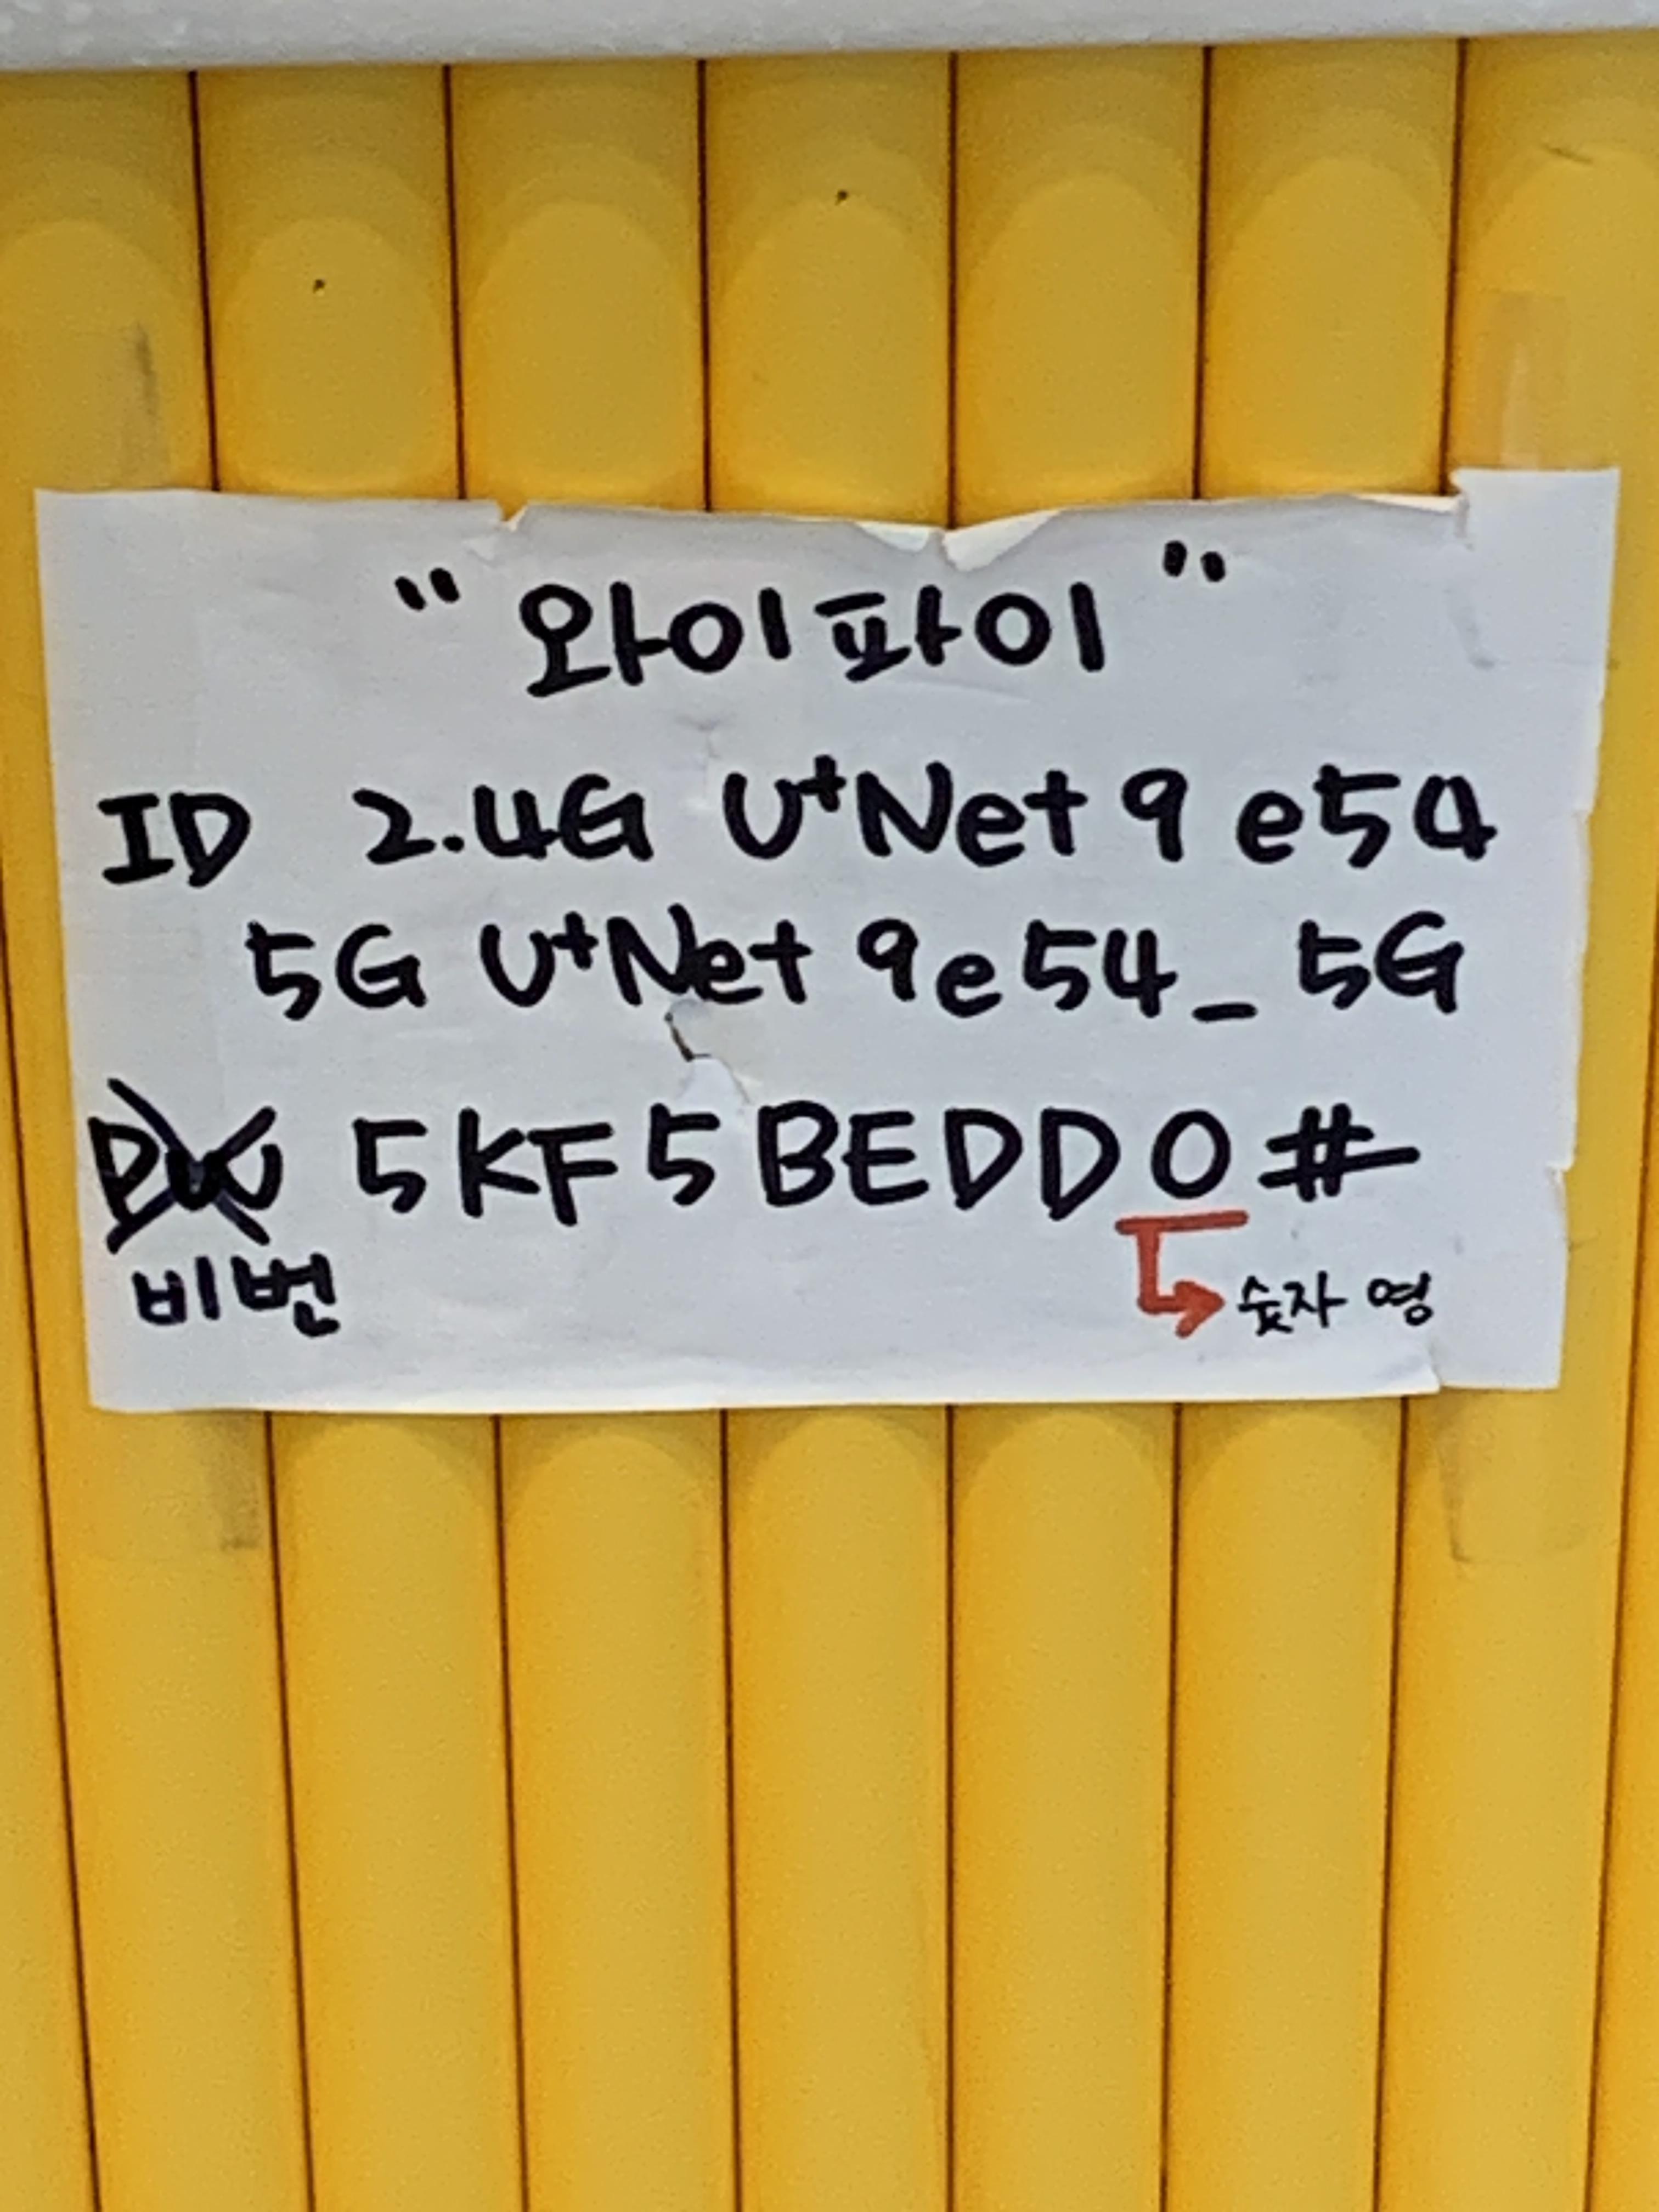 "와이파이"
ID 2.4G U⁺Net 9e54
5G U⁺Net 9e54_5G
PW 5KF5BEDD0#
비번
숫자 영